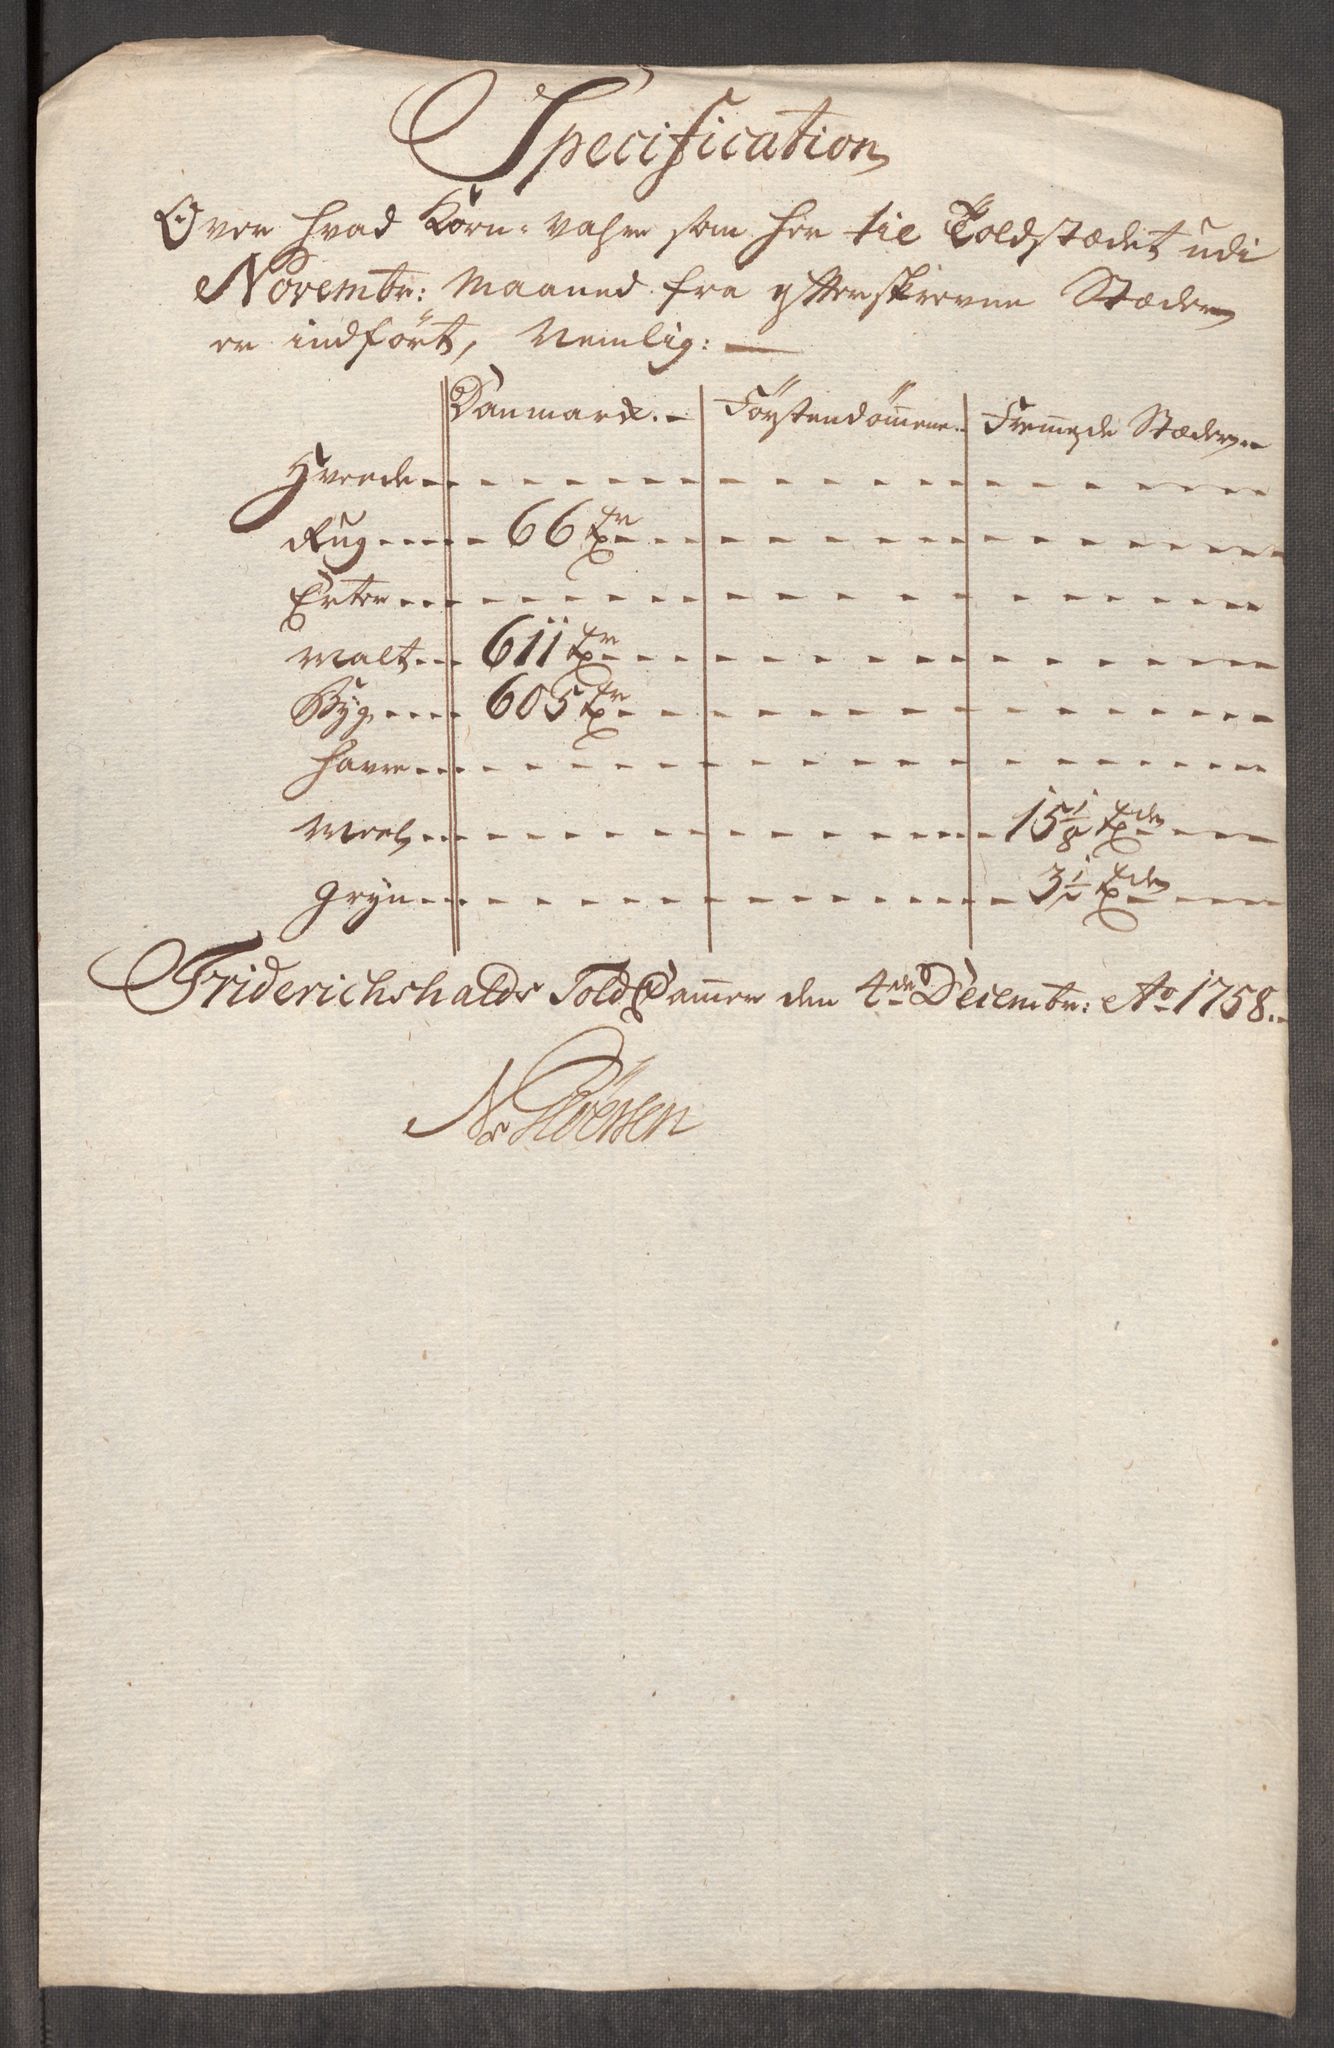 Specification
Over hvad Korn-Vahre som her til Toldstædet udi
Novembr: Maaned fra efterskrevne Stæder
er indført, Nemlig:
Danmarck. Förstendömene. Fremmede Stæder
Hveede
Rug 66 Tr
Erter
Malt 611 Tr
Byg 605 Tr
Havre
Meel 15 1/8 Tder
Gryn 3 1/2 Tder
Friderichshalds Told Cammer den 4de Decembr: Ao 1758.